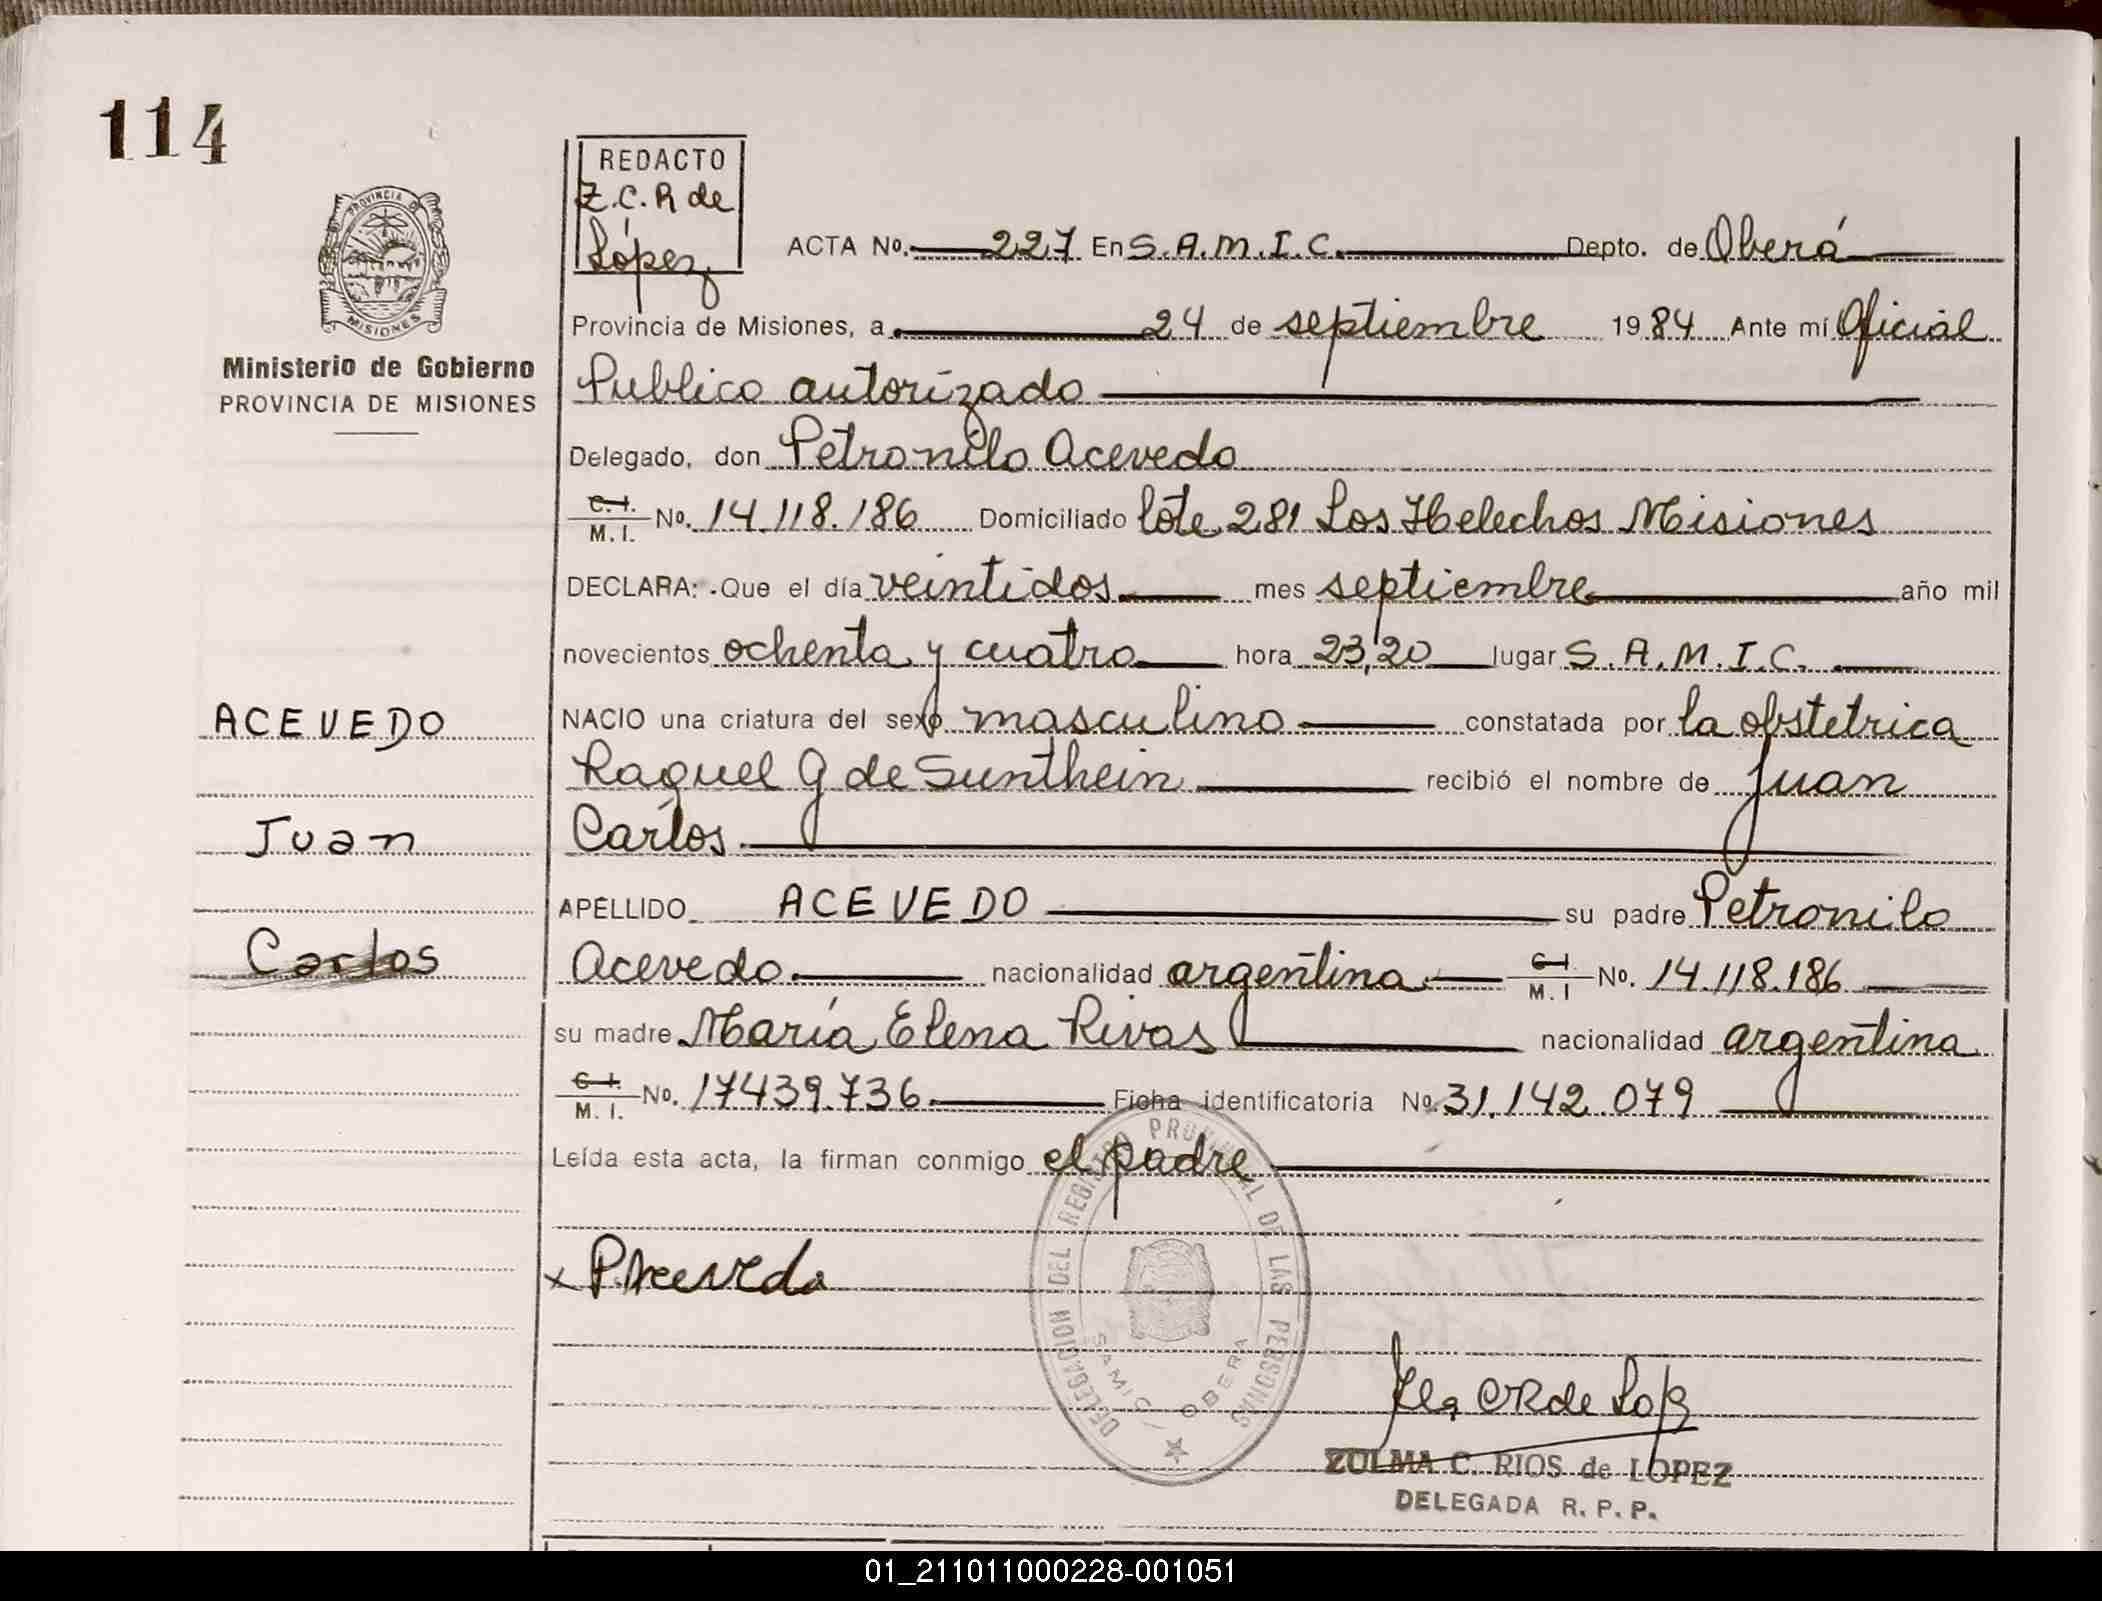 114
REDACTO
Z.C.R de
López
ACTA No. 227 En S.A.M.I.C. Depto. de Oberá
Provincia de Misiones, a 24 de septiembre 1984 Ante mí Oficial
Publico autorizado
Delegado, don Petronilo Acevedo
C.I. M.I. No. 14.118.186 Domiciliado lote 281 Los Helechos Misiones
DECLARA: Que el día veintidos mes septiembre año mil
novecientos ochenta y cuatro hora 23,20 lugar S.A.M.I.C.
NACIO una criatura del sexo masculino constatada por la obstetrica
Raquel G de Sunthein recibió el nombre de Juan
Carlos
APELLIDO ACEVEDO su padre Petronilo
Acevedo nacionalidad argentina C.I. M.I No. 14.118.186
su madre María Elena Rivas nacionalidad argentina
C.I. M.I. No. 17439.736 Ficha identificatoria No. 31.142.079
Leída esta acta, la firman conmigo el padre
x P.Acevedo
PROVINCIA DE
MISIONES
Ministerio de Gobierno
PROVINCIA DE MISIONES
ACEVEDO
Juan
Carlos
DELEGACION DEL REGISTRO PROVINCIAL DE LAS PERSONAS
SAMIC / OBERA
ZULMA C. RIOS de LOPEZ
DELEGADA R. P. P.
01_211011000228-001051